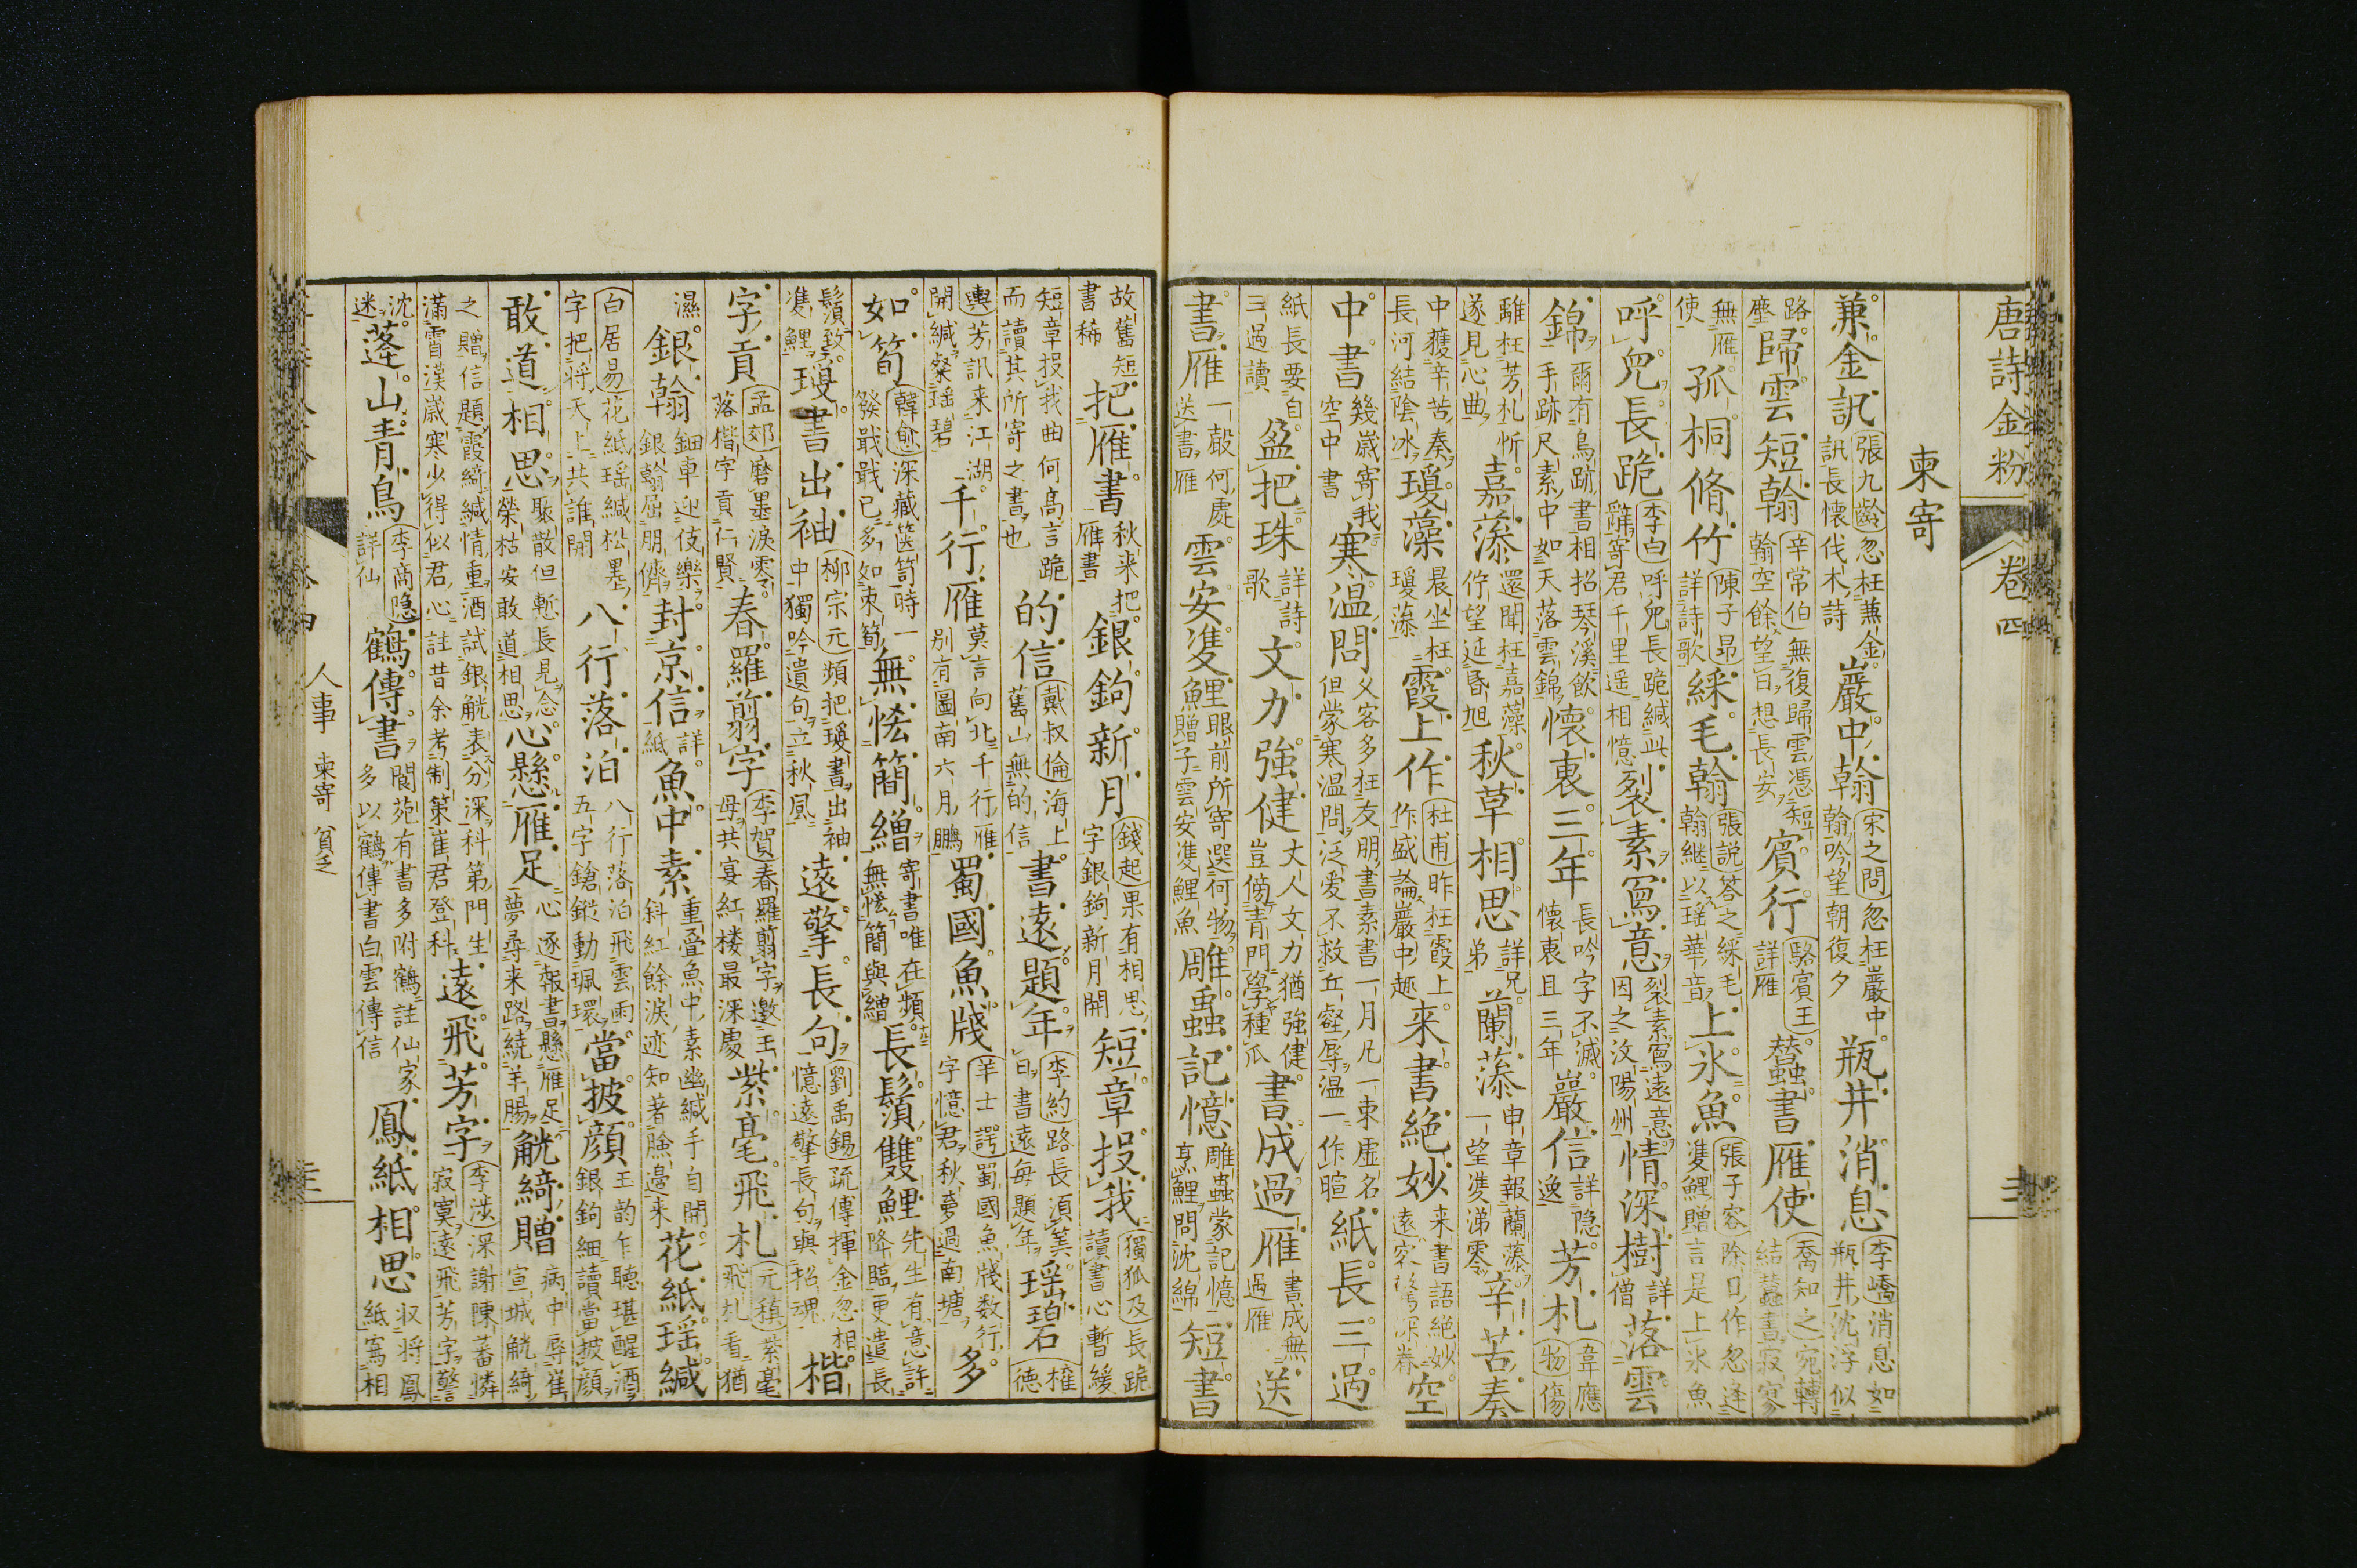 唐詩金粉 卷四 三
柬寄
兼金訊 張九齡 忽枉兼金訊長懷伐木詩 巖中翰 宋之問 忽枉巖中翰吟望朝復夕 瓶井消息 李嶠 消息如瓶井沈浮似
路塵 歸雲短翰 辛常伯 無復歸雲憑短翰空餘望日想長安 賓行 駱賓王 詳雁 蠶書雁使 喬知之 宛轉結蠶書寂寥
無雁使 孤桐脩竹 陳子昂 詳詩歌 綵毛翰 張説 答之綵毛翰繼以瑶華音 上氷魚 張子容 除日作忽逢雙鯉贈言是上氷魚
呼兒長跪 李白 呼兒長跪緘此辭寄君千里遥相憶 裂素寫意 裂素寫遠意因之汶陽州 情深樹 詳僧 落雲
錦 爾有鳥跡書相招琴溪飲手跡尺素中如天落雲錦 懷裏三年 長吟字不滅懷裏且三年 巖信 詳隐逸 芳札 韋應物 傷
離枉芳札忻遂見心曲 嘉藻 還聞枉嘉藻佇望延昏旭 秋草相思 詳兄弟 蘭藻 申章報蘭藻一望雙涕零 辛苦奏
中獲辛苦奏長河結陰冰 瓊藻 晨坐枉瓊藻 霞上作 杜甫 昨枉霞上作盛論巖中趣 来書絶妙 来書語絶妙遠客 空
中書 幾歲寄我空中書 寒温問 父客多枉友朋書素書一月凡一束虚名但蒙寒温問泛爱不救丘壑辱温一作暄 紙長三過
紙長要自三過讀 盈把珠 詳詩歌 文力強健 丈人文力猶強健豈傍青門學種瓜 書成過雁 書成無過雁 送
書雁 一敲何處送書雁 雲安雙鯉 眼前所寄選何物贈子雲安雙鯉魚 雕蟲記憶 雕蟲蒙記憶烹鯉問沈綿 短書
故舊短書稀 把雁書 秋来把雁書 銀鉤新月 錢起 果有相思字銀鉤新月開 短章投我 獨孤及 長跪讀書心暫緩
短章投我曲何高言跪而讀其所寄之書也 的信 戴叔倫 海上舊山無的信 書遠題年 李約 路長須算日書遠每題年 瑶碧 權德
輿 芳訊来江湖開緘粲瑶碧 千行雁 莫言向北千行雁別有圖南六月鵬 蜀國魚牋 羊士諤 蜀國魚牋数行字憶君秋夢過南塘 多
如筍 韓愈 深藏篋笥時一發戢戢已多如束筍 無恡簡繒 寄書唯在頻無恡簡與繒 長鬚雙鯉 先生有意許降臨更遣長
鬚致雙鯉 瓊書出袖 柳宗元 頻把瓊書出袖中獨吟遺句立秋風 遠擎長句 劉禹錫 疏傳揮金忽相憶遠擎長句與招魂 楷
字貢 孟郊 磨墨淚零落楷字貢仁賢 春羅翦字 李賀 春羅翦字邀王母共宴紅楼最深處 紫毫飛札 元稹 紫毫飛札看猶
濕 銀翰 鈿車迎伎樂銀翰屈朋儕 封京信 詳紙 魚中素 重疊魚中素幽緘手自開斜紅餘淚迹知著臉邊来 花紙瑶緘
白居易 花紙瑶緘松墨字把将天上共誰開 八行落泊 八行落泊飛雲雨五字鎗鏦動珮環 當披顔 王韵乍聴堪醒酒銀鉤細讀當披顔
敢道相思 聚散但慙長見念榮枯安敢道相思 心懸雁足 心逐報書懸雁足夢尋来路繞羊腸 觥綺贈 病中辱崔宣城觥綺
之贈信題霞綺緘情重酒試銀觥表分深科第門生滿霄漢歳寒少得似君心註昔余考制策崔君登科 遠飛芳字 李渉 深謝陳蕃憐寂寞遠飛芳字警
沈迷 蓬山青鳥 李商隐 詳仙 鶴傳書 閬苑有書多附鶴註仙家多以鶴傳書白雲傳信 鳳紙相思 収将鳳紙寫相
人事 柬寄 貧乏